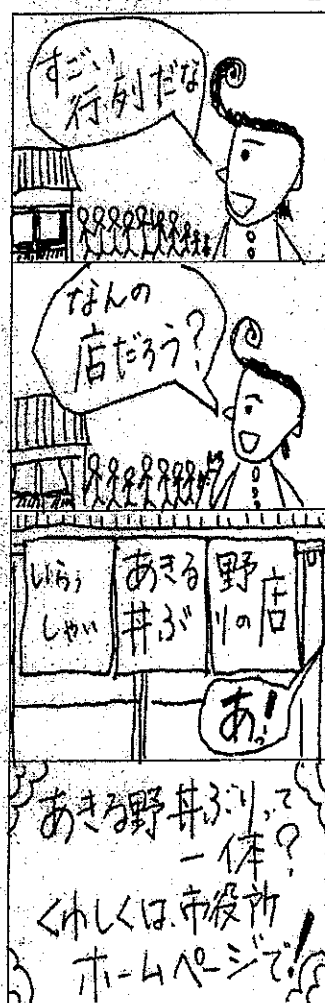 すごい
行列だな
なんの
店だろう?
いらっ
しゃい
あきる野
丼ぶりの店
あっ!
あきる野丼ぶりって
一体?
くわしくは、市役所
ホームページで!